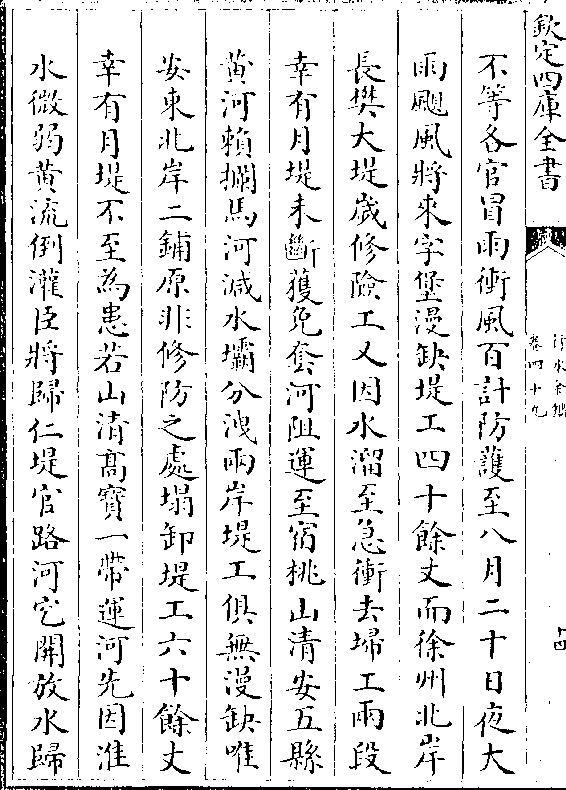 欽定四庫全書
行水金鑑
卷四十九
十四
不等各官冒雨衝風百計防護至八月二十日夜大
雨颶風將來字堡漫缺堤工四十餘丈而徐州北岸
長樊大堤歲修險工又因水溜至急衝去埽工兩段
幸有月堤未斷獲免套河阻運至宿桃山清安五縣
黄河賴攔馬河減水壩分洩兩岸堤工俱無漫缺唯
安東北岸二鋪原非修防之處塌卸堤工六十餘丈
幸有月堤不至為患若山清髙寳一帶運河先因淮
水微弱黄流倒灌臣將歸仁堤官路河宅開放水歸